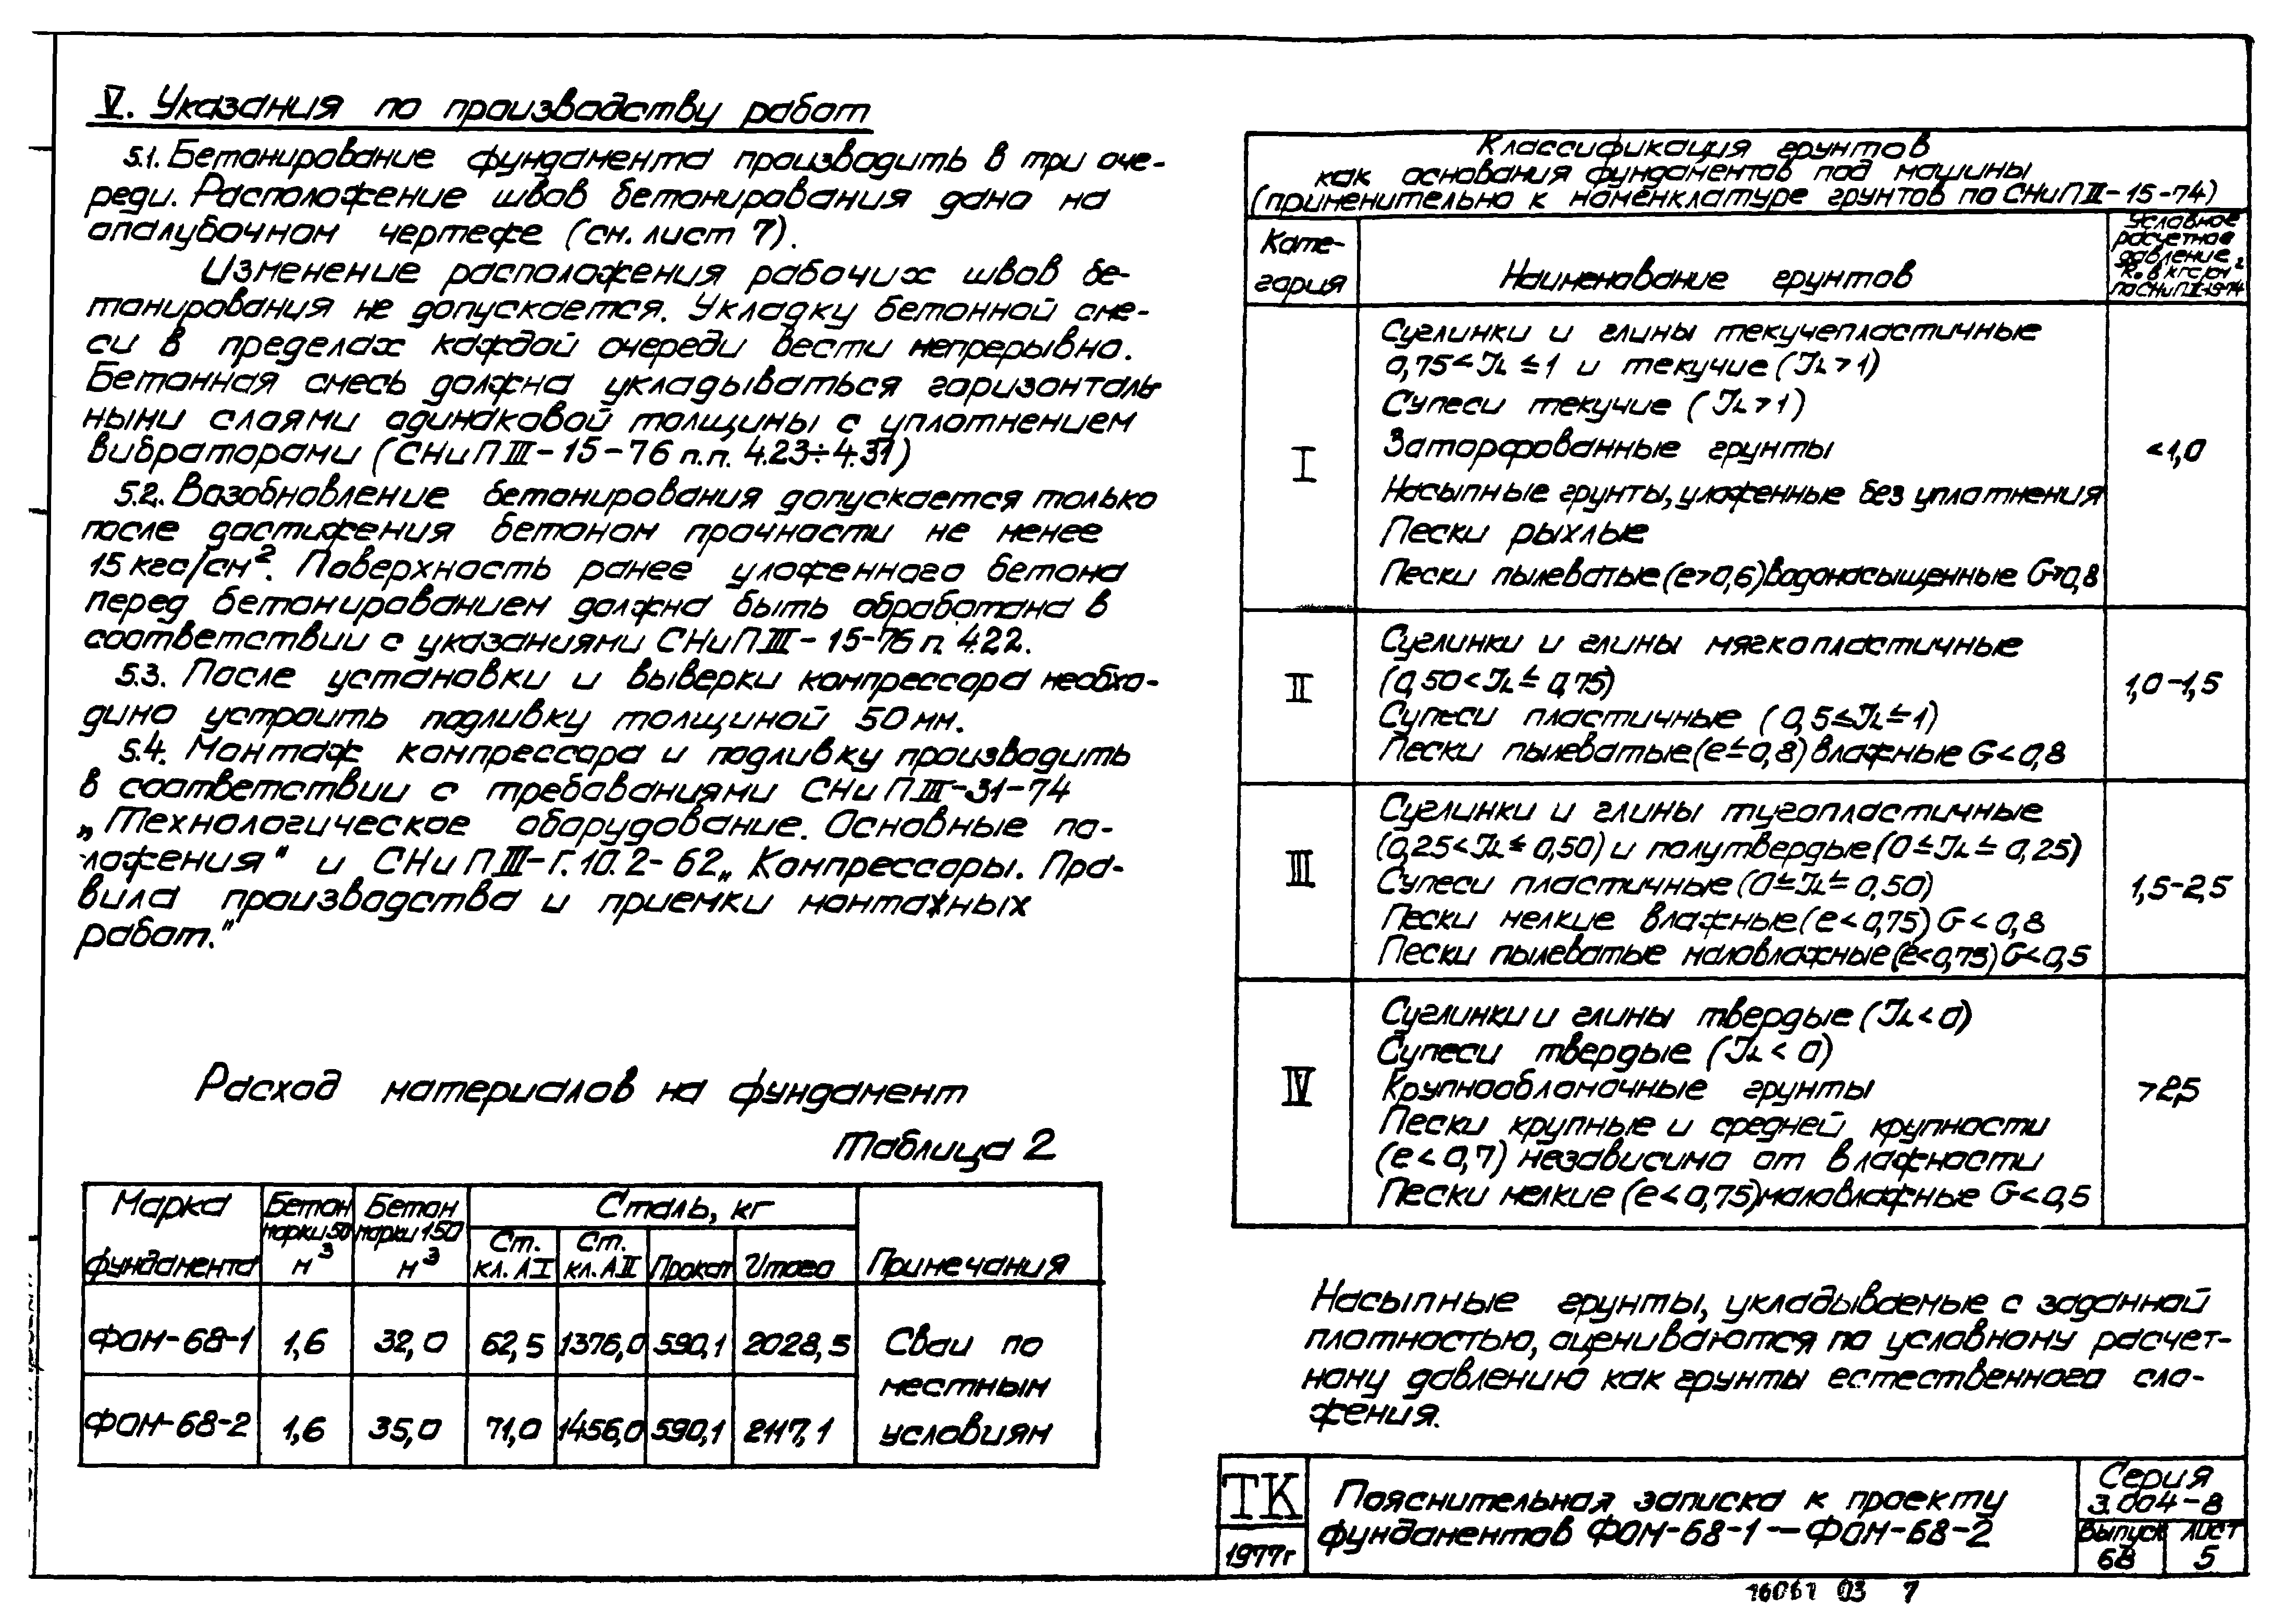 V. Указания по производству работ
5.1. Бетонирование фундамента производить в три оче-
реди. Расположение швов бетонирования дано на
опалубочном чертеже (см. лист 7).
Изменение расположения рабочих швов бе-
тонирования не допускается. Укладку бетонной сме-
си в пределах каждой очереди вести непрерывно.
Бетонная смесь должна укладываться горизонталь
ными слоями одинаковой толщины с уплотнением
вибраторами (СНиП III-15-76 п.п. 4.23÷4.31)
5.2. Возобновление бетонирования допускается только
после достижения бетоном прочности не менее
15 кгс/см². Поверхность ранее уложенного бетона
перед бетонированием должна быть обработана в
соответствии с указаниями СНиП III-15-76 п. 4.22.
5.3. После установки и выверки компрессора необхо-
димо устроить подливку толщиной 50 мм.
5.4. Монтаж компрессора и подливку производить
в соответствии с требованиями СНиП III-31-74
„Технологическое оборудование. Основные по-
ложения" и СНиП III-Г.10.2-62 „Компрессоры. Пра-
вила производства и приемки монтажных
работ."
Расход материалов на фундамент
Таблица 2
Марка фундамента
Бетон марки 50 м³
Бетон марки 150 м³
Сталь, кг
Ст. кл. АI
Ст. кл. АII
Прокат
Итого
Примечания
ФОМ-68-1 1,6 32,0 62,5 1376,0 590,1 2028,5
ФОМ-68-2 1,6 35,0 71,0 1456,0 590,1 2117,1
Сваи по
местным
условиям
Классификация грунтов
как основания фундаментов под машины
(применительно к номенклатуре грунтов по СНиП II-15-74)
Кате-
гория
Наименование грунтов
Условное
расчетное
давление
R₀ в кгс/см²
по СНиП II-15-74
I
Суглинки и глины текучепластичные
0,75<IL≤1 и текучие (IL>1)
Супеси текучие (IL>1)
Заторфованные грунты
Насыпные грунты, уложенные без уплотнения
Пески рыхлые
Пески пылеватые (e>0,6) водонасыщенные G>0,8
<1,0
II
Суглинки и глины мягкопластичные
(0,50<IL≤0,75)
Супеси пластичные (0,5≤IL≤1)
Пески пылеватые (e≤0,8) влажные G<0,8
1,0-1,5
III
Суглинки и глины тугопластичные
(0,25<IL≤0,50) и полутвердые (0≤IL≤0,25)
Супеси пластичные (0≤IL≤0,50)
Пески мелкие влажные (e<0,75) G<0,8
Пески пылеватые маловлажные (e<0,75) G<0,5
1,5-2,5
IV
Суглинки и глины твердые (IL<0)
Супеси твердые (IL<0)
Крупнообломочные грунты
Пески крупные и средней крупности
(e<0,7) независимо от влажности
Пески мелкие (e<0,75) маловлажные G<0,5
>2,5
Насыпные грунты, укладываемые с заданной
плотностью, оцениваются по условному расчет-
ному давлению как грунты естественного сло-
жения.
ТК
1977г
Пояснительная записка к проекту
фундаментов ФОМ-68-1 — ФОМ-68-2
Серия
3.004-8
Выпуск
68
лист
5
16061 03 7